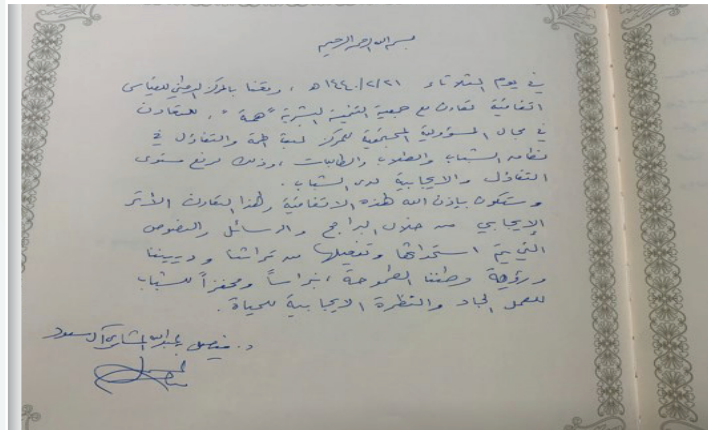 بسم الله الرحمن الرحيم
في يوم الثلاثاء ١٤٤٠/٢/٢١هـ ، وقعنا بالمركز الوطني للقياس
اتفاقية تعاون مع جمعية التنمية البشرية "همة" ، للتعاون
في مجال المسؤولية المجتمعية للمركز لبث الهمة والتفاؤل في
الشباب والطلاب والطالبات ، وذلك لرفع مستوى
التفاؤل والايجابية لدى الشباب .
وستكون بإذن الله هذه الاتفاقية ولهذا التعاون الأثر
الإيجابي من خلال البرامج والرسائل والنصوص
التي يتم استحداثها وتفعيلها من تراثنا وديننا
ورؤية وطننا الطموحة ، نبراساً ومحفزاً للشباب
للعمل الجاد والنظرة الايجابية للحياة .
د. فيصل بن عبدالله المشاري آل سعود